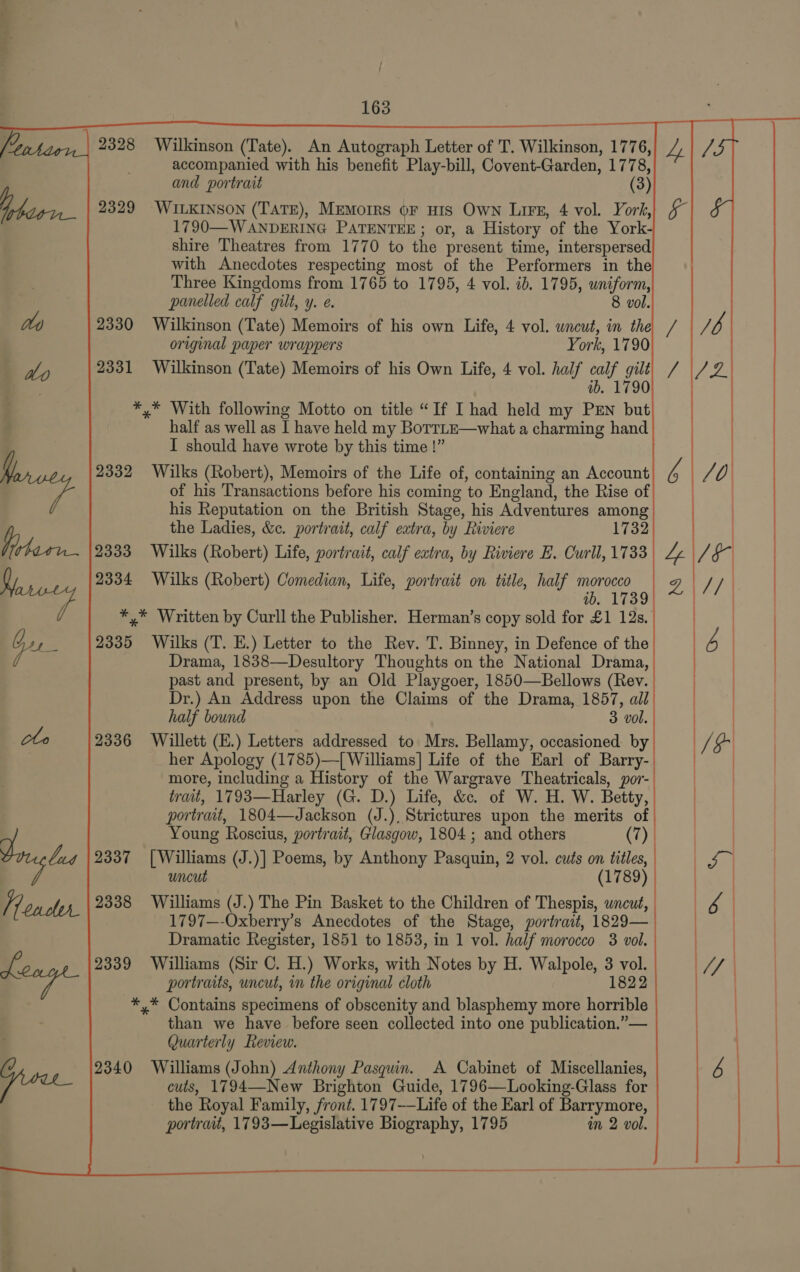 163
2328 Wilkinson (Tate). An Autograph Letter of T. Wilkinson, 1776, 4 15
accompanied with his benefit Play-bill, Covent-Garden, 1778,
and portrait (3)
2329 WILKINSON (TATE), MEMOIRS OF HIS OWN LIFE, 4 vol. York, 8 8
1790—WANDERING PATENTEE; or, a History of the York-
shire Theatres from 1770 to the present time, interspersed
with Anecdotes respecting most of the Performers in the
Three Kingdoms from 1765 to 1795, 4 vol. ib. 1795, uniform,
panelled calf gilt, y. e. 8 vol.
do 2330 Wilkinson (Tate) Memoirs of his own Life, 4 vol. uncut, in the 1 16
original paper wrappers York, 1790
do 2331 Wilkinson (Tate) Memoirs of his Own Life, 4 vol. half calf gilt 1 12
ib. 1790
*** With following Motto on title “If I had held my PEN but
half as well as I have held my BOTTLE—what a charming hand
I should have wrote by this time!”
Harvey 2332 Wilks (Robert), Memoirs of the Life of, containing an Account 6 10
of his Transactions before his coming to England, the Rise of
his Reputation on the British Stage, his Adventures among
the Ladies, &c. portrait, calf extra, by Riviere 1732
2333 Wilks (Robert) Life, portrait, calf extra, by Riviere E. Curll, 1733 4 18
Harvey 2334 Wilks (Robert) Comedian, Life, portrait on title, half morocco 2 11
ib. 1739
*** Written by Curll the Publisher. Herman’s copy sold for £1 12s.
2335 Wilks (T. E.) Letter to the Rev. T. Binney, in Defence of the 6
Drama, 1838—Desultory Thoughts on the National Drama,
past and present, by an Old Playgoer, 1850—Bellows (Rev.
Dr.) An Address upon the Claims of the Drama, 1857, all
half bound 3 vol.
do 2336 Willett (E.) Letters addressed to Mrs. Bellamy, occasioned by 18
her Apology (1785)—[Williams] Life of the Earl of Barry-
more, including a History of the Wargrave Theatricals, por-
trait, 1793—Harley (G. D.) Life, &c. of W. H. W. Betty,
portrait, 1804—Jackson (J.), Strictures upon the merits of
Young Roscius, portrait, Glasgow, 1804; and others (7)
Douglas 2337 [Williams (J.)] Poems, by Anthony Pasquin, 2 vol. cuts on titles, 5
uncut (1789)
Header 2338 Williams (J.) The Pin Basket to the Children of Thespis, uncut, 6
1797—Oxberry’s Anecdotes of the Stage, portrait, 1829—
Dramatic Register, 1851 to 1853, in 1 vol. half morocco 3 vol.
2339 Williams (Sir C. H.) Works, with Notes by H. Walpole, 3 vol. 11
portraits, uncut, in the original cloth 1822
*** Contains specimens of obscenity and blasphemy more horrible
than we have before seen collected into one publication.”—
Quarterly Review.
2340 Williams (John) Anthony Pasquin. A Cabinet of Miscellanies, 6
cuts, 1794—New Brighton Guide, 1796—Looking-Glass for
the Royal Family, front. 1797—Life of the Earl of Barrymore,
portrait, 1793—Legislative Biography, 1795 in 2 vol.